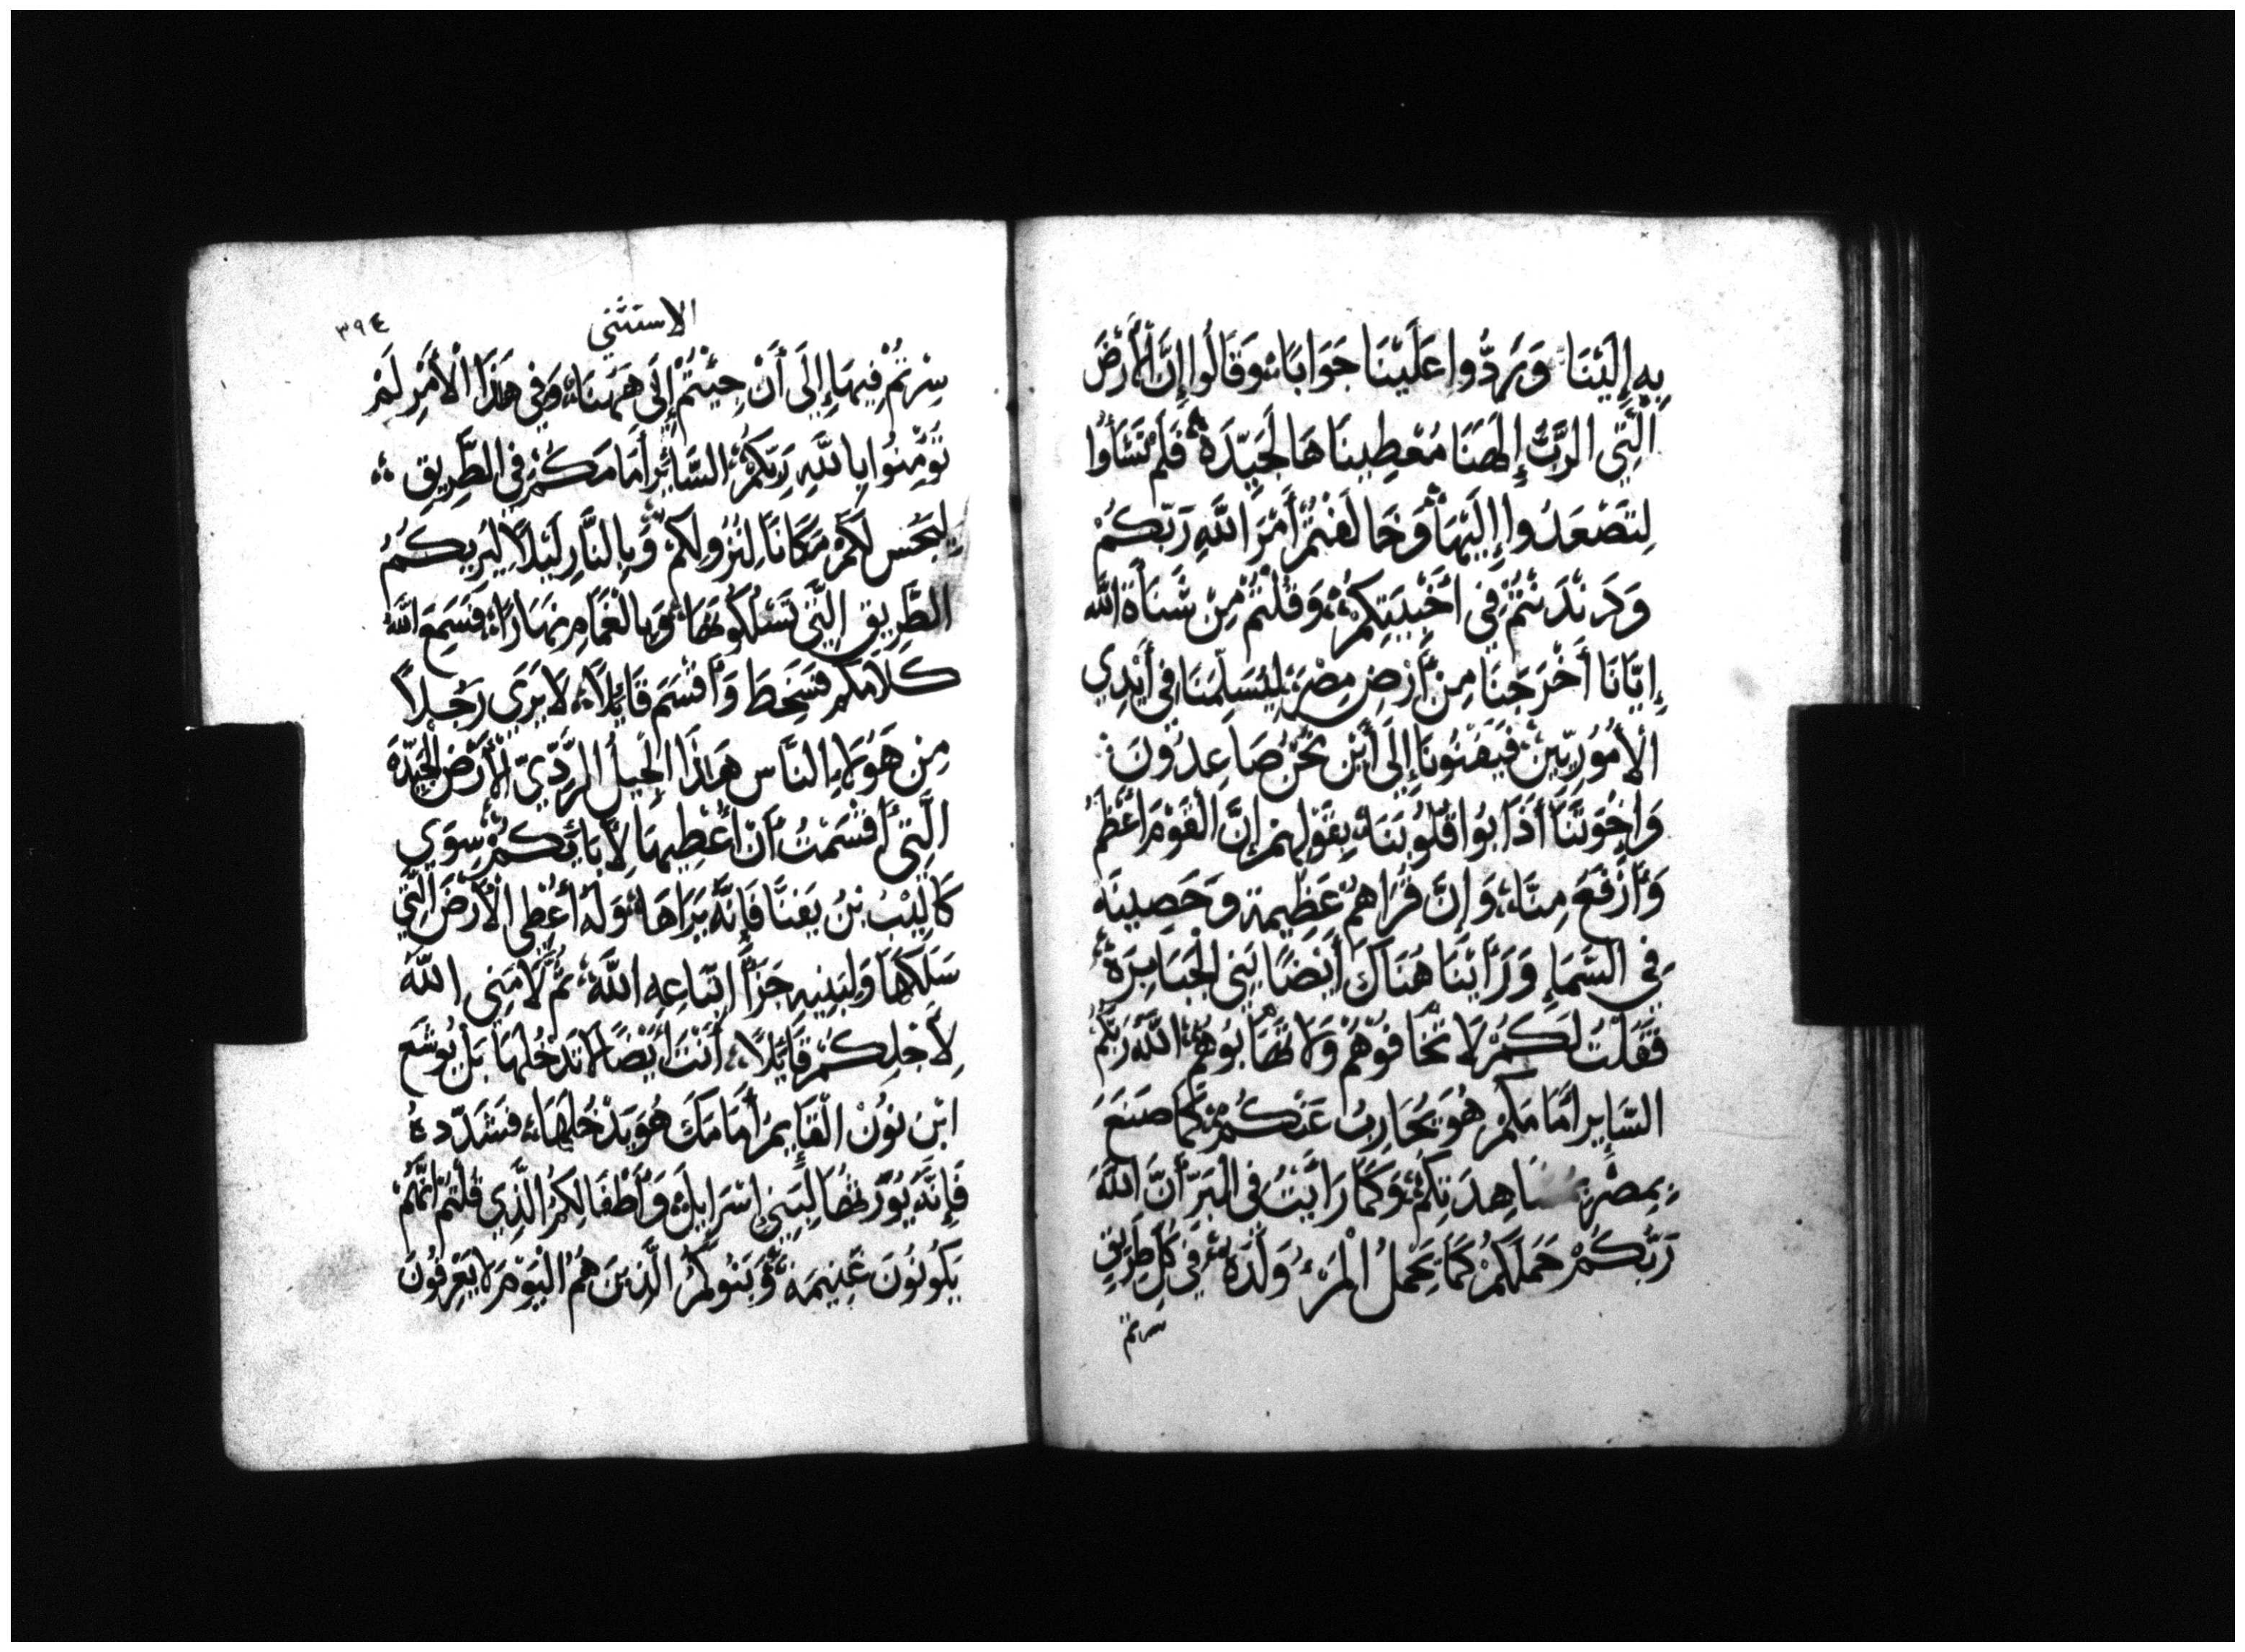 بِهِ إِلَيْنَا وَرَدُّوا عَلَيْنَا جَوَابَاً وَقَالُوا إِنَّ الْأَرْضَ
الَّتِي الرَّبُّ إِلَهُنَا مُعْطِينَاهَا لَجَيِّدَةٌ فَلَمْ تَشَأُوا
لِتَصْعَدُوا إِلَيْهَا وَخَالَفْتُمْ أَمْرَ اللَّهِ رَبِّكُمْ
وَدَنْدَنْتُمْ فِي أَخْبِيَتِكُمْ وَقُلْتُمْ مِنْ شَنَأَةِ اللَّه
إِيَّانَا أَخْرَجَنَا مِنْ أَرْضِ مِصْرَ لِيُسَلِّمَنَا فِي أَيْدِي
الْأَمُورِيِّينَ فَيَفْنُونَا إِلَى أَيْنَ نَحْنُ صَاعِدُونَ
وَإِخْوَتُنَا أَذَابُوا قُلُوبَنَا بِقَوْلِهِمْ إِنَّ الْقَوْمَ أَعْظَمُ
وَأَرْفَعُ مِنَّا وَإِنَّ قُرَاهُمْ عَظِيمَة وَحَصِينَه
فِي السَّمَاءِ وَرَأَيْنَا هُنَاكَ أَيْضًا بَنِي الْجَبَابِرَةِ
فَقُلْتُ لَكُمْ لَا تَخَافُوهُمْ وَلَا تَهَابُوهُمْ اللَّهُ رَبُّكُمُ
السَّايِر أَمَامَكُمْ هُوَ يُحَارِبُ عَنْكُمْ كَمَا صَنَعَ
بِمِصْرَ مُشَاهِدَتِكُمْ وَكَمَا رَأَيْتُ فِي الْبَرِّ أَنَّ اللَّهَ
رَبَّكُمْ حَمَلَكُمْ كَمَا يَحْمِلُ الْمَرْءُ وَلَدَهُ فِي كُلِّ طَرِيقٍ
سرتم
٣٩٤
الاستثني
سِرْتُمْ فِيهَا إِلَى أَنْ جِيْتُمْ إِلَى هَهُنَا وَفِي هَذَا الْأَمْرِ لَمْ
تُوْمِنُوا بِاللَّهِ رَبِّكُمْ السَّائِرِ أَمَامَكُمْ فِي الطَّرِيقِ
لِيَجُسَّ لَكُمْ مَكَانَاً لِنُزُولِكُمْ وَبِالنَّارِ لَيْلاً لِيُرِيكُمُ
الطَّرِيقِ الَّتِي تَسْلُكُونَهَا وَبِالْغَمَامِ نَهَارَاً فَسَمِعَ اللَّهُ
كَلَامَكُم فَسَخِطَ وَأَقْسَمَ قَايِلاً لَا يَرَى رَجُلاً
مِن هَؤُلَاءِ النَّاس هَذَا الْجِيلُ الرَّدِيّ الْأَرْضَ الْجَيِّدَةَ
الَّتِي أَقْسَمْتُ أَنْ أُعْطِيهَا لِأَبَايِكُمْ سِوَي
كَالِيْبُ بْنُ يَفُنَّا فَإِنَّهُ يَرَاهَا وَلَهُ أُعْطِي الْأَرْضَ الَّتِي
سَلَكَهَا وَلِبَنِيهِ جَزَاً اتِّبَاعِهِ اللَّهَ ثُمَّ لَامَنِي اللَّهُ
لِأَجْلِكُمْ قَايِلاً أَنْتَ أَيْضًا لَا تَدْخُلُهَا بَلْ يُوشَع
ابْن نُوْن الْقَايِمُ أَمَامَكَ هُوَ يَدْخُلُهَا فَشَدِّدهُ
فَإِنَّهُ يُوَرِّثُهَا لِبَنِي إِسْرَايِلَ وَأَطْفَالِكُمُ الَّذِي قُلْتُمْ إِنَّهُمْ
يَكُونُونَ غَنِيمَة وَبَنُوكُمُ الَّذِينَ هُمُ الْيَوْمَ لَا يَعْرِفُونَ